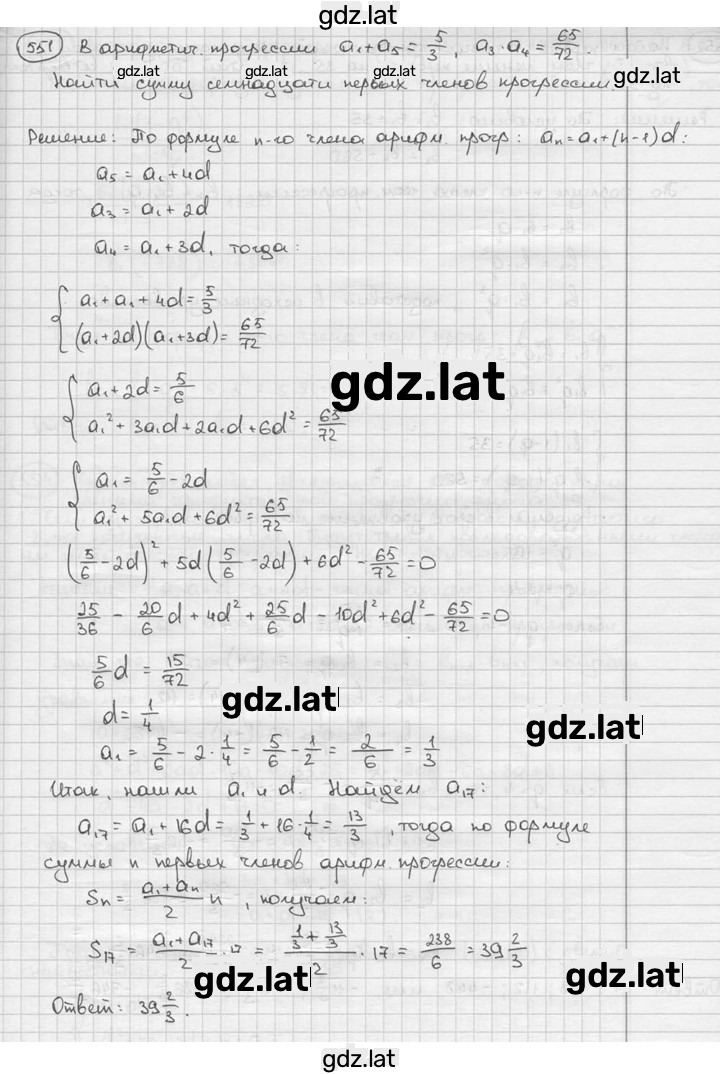 gdz.lat
551 В арифметич. прогрессии a₁+a₅=5/3, a₃·a₄=65/72.
gdz.lat gdz.lat gdz.lat
Найти сумму семнадцати первых членов прогрессии.
Решение: По формуле n-го члена арифм. прогр: aₙ=a₁+(n-1)d:
a₅=a₁+4d
a₃=a₁+2d
a₄=a₁+3d, тогда:
{ a₁+a₁+4d=5/3
(a₁+2d)(a₁+3d)=65/72
gdz.lat
{ a₁+2d=5/6
a₁²+3a₁d+2a₁d+6d²=65/72
{ a₁=5/6-2d
a₁²+5a₁d+6d²=65/72
(5/6-2d)²+5d(5/6-2d)+6d²-65/72=0
25/36-20/6d+4d²+25/6d-10d²+6d²-65/72=0
5/6d=15/72
gdz.lat
d=1/4
gdz.lat
a₁=5/6-2·1/4=5/6-1/2=2/6=1/3
Итак, нашли a₁ и d. Найдём a₁₇:
a₁₇=a₁+16d=1/3+16·1/4=13/3, тогда по формуле
суммы n первых членов арифм. прогрессии:
Sₙ=(a₁+aₙ)/2 n, получаем:
S₁₇=(a₁+a₁₇)/2·17=(1/3+13/3)/2·17=238/6=39 2/3
gdz.lat gdz.lat
Ответ: 39 2/3.
gdz.lat